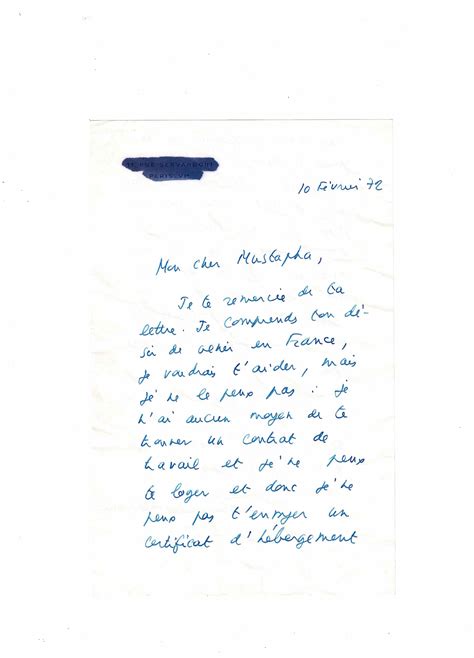 11 RUE SERVANDONI
PARIS VIᵉ
10 Février 72
Mon cher Mustapha,
Je te remercie de ta
lettre. Je comprends ton dé-
sir de venir en France,
je voudrais t'aider, mais
je ne le peux pas : je
n'ai aucun moyen de te
trouver un contrat de
travail et je ne peux
te loger et donc je ne
peux pas t'envoyer un
certificat d'hébergement